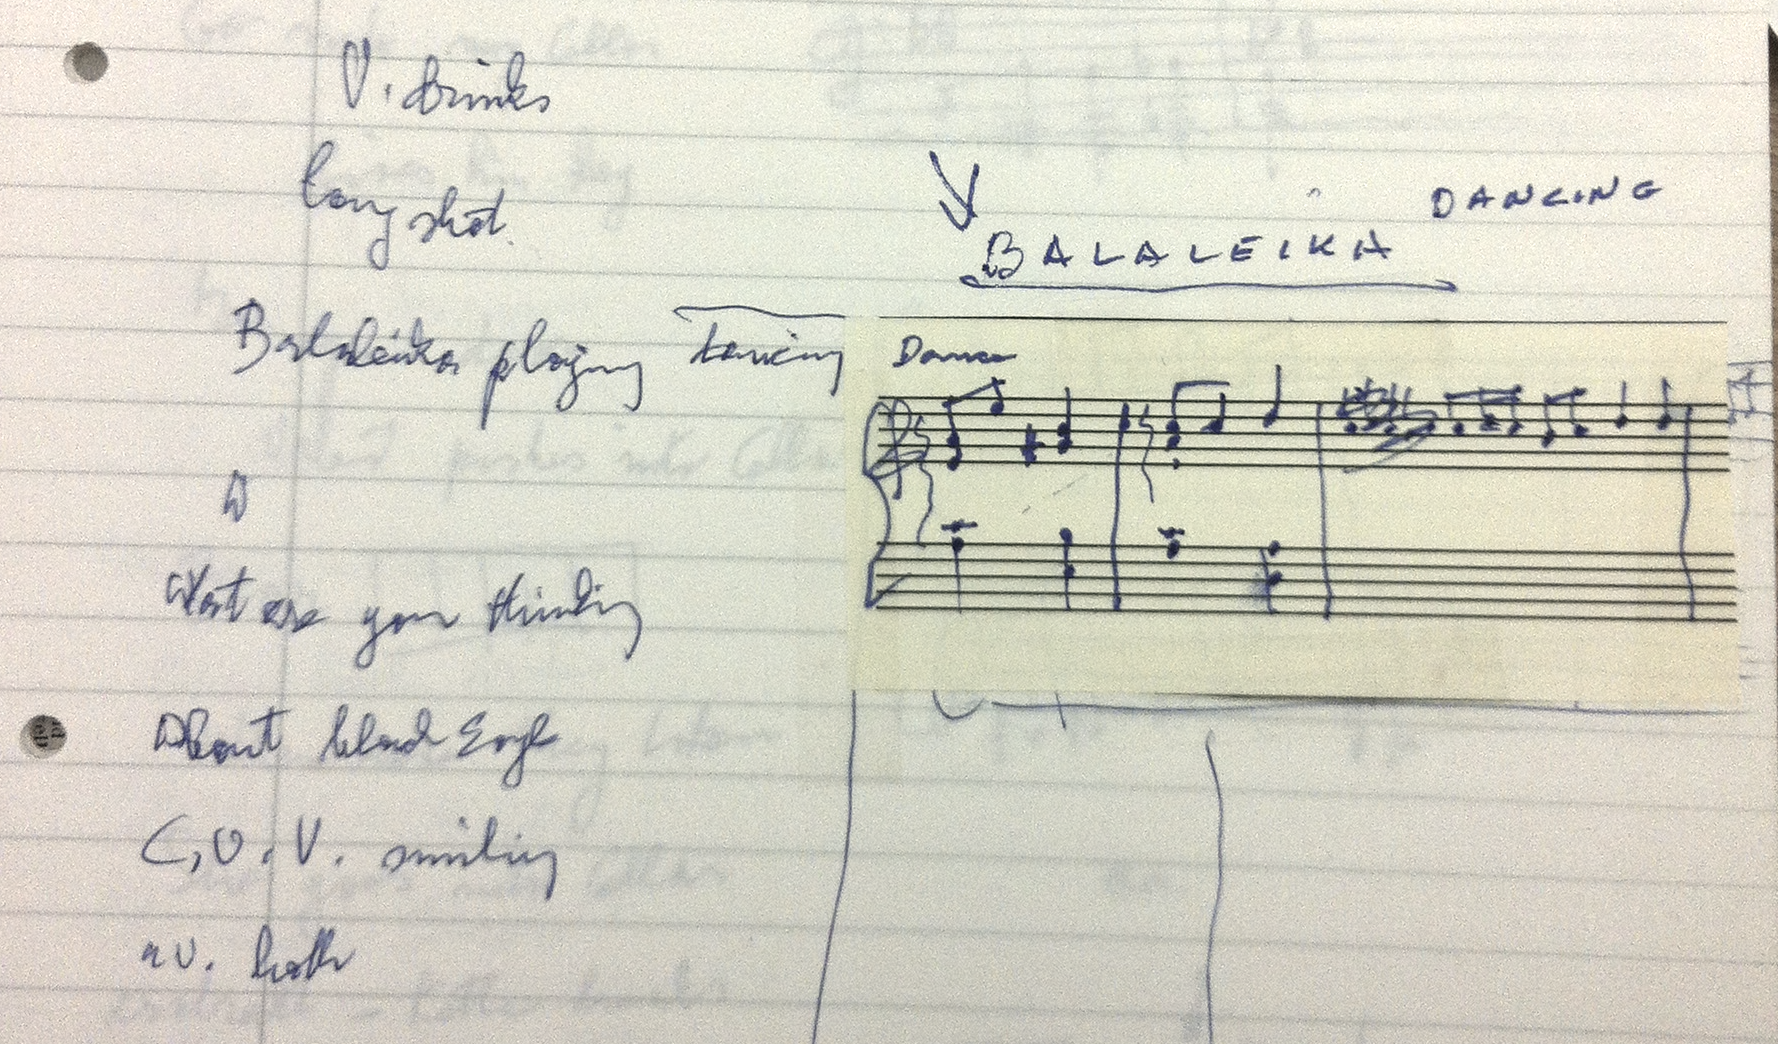 V. drinks
long shot.
DANCING
BALALEIKA
Balaleika playing dancing
Dance
What are you thinking
About black Eagle
C, U. V. smiling
both